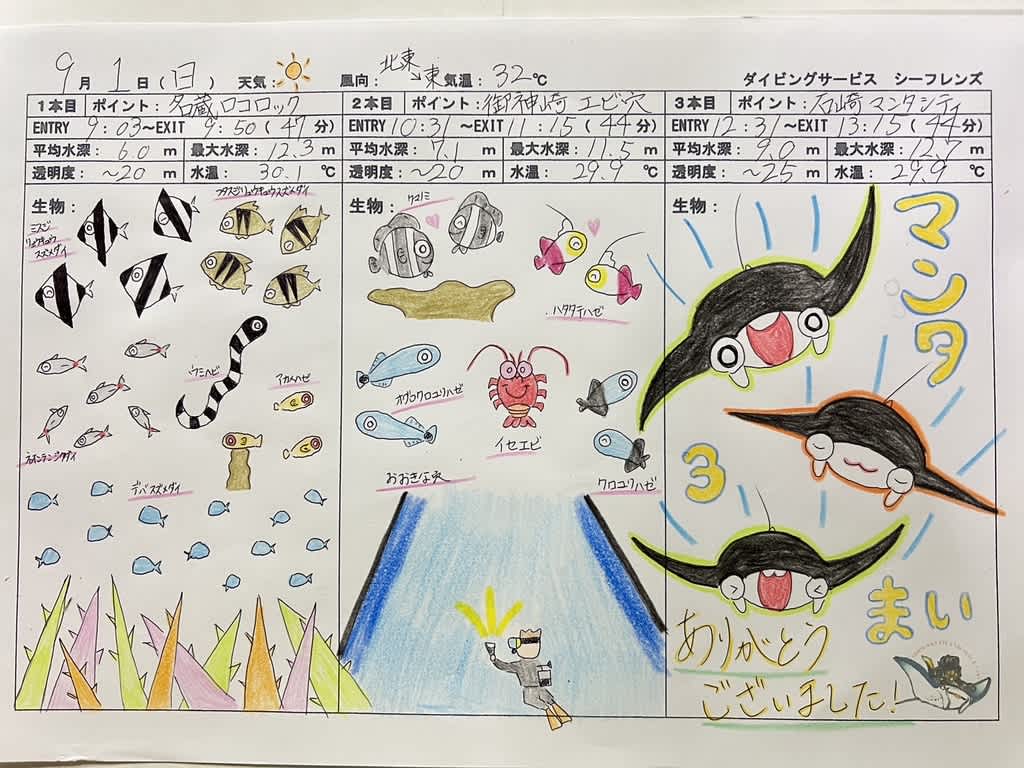 9月1日(日) 天気: 風向: 北東→東 気温: 32℃
ダイビングサービス シーフレンズ
1本目 ポイント: 名蔵 ロコロック
ENTRY 9:03~EXIT 9:50(47分)
平均水深: 6.0 m 最大水深: 12.3 m
透明度: ~20 m 水温: 30.1 ℃
生物:
ミスジ
リュウキュウ
スズメダイ
フタスジリュウキュウスズメダイ
ウミヘビ
アカメハゼ
デバスズメダイ
2本目 ポイント: 御神崎 エビ穴
ENTRY 10:31~EXIT 11:15(44分)
平均水深: 7.1 m 最大水深: 11.5 m
透明度: ~20 m 水温: 29.9 ℃
生物:
クマノミ
ハタタテハゼ
オグロクロユリハゼ
イセエビ
おおきな穴
クロユリハゼ
3本目 ポイント: 石崎 マンタシティ
ENTRY 12:31~EXIT 13:15(44分)
平均水深: 9.0 m 最大水深: 12.7 m
透明度: ~25 m 水温: 29.9 ℃
生物:
マンタ
3
まい
ありがとう
ございました!